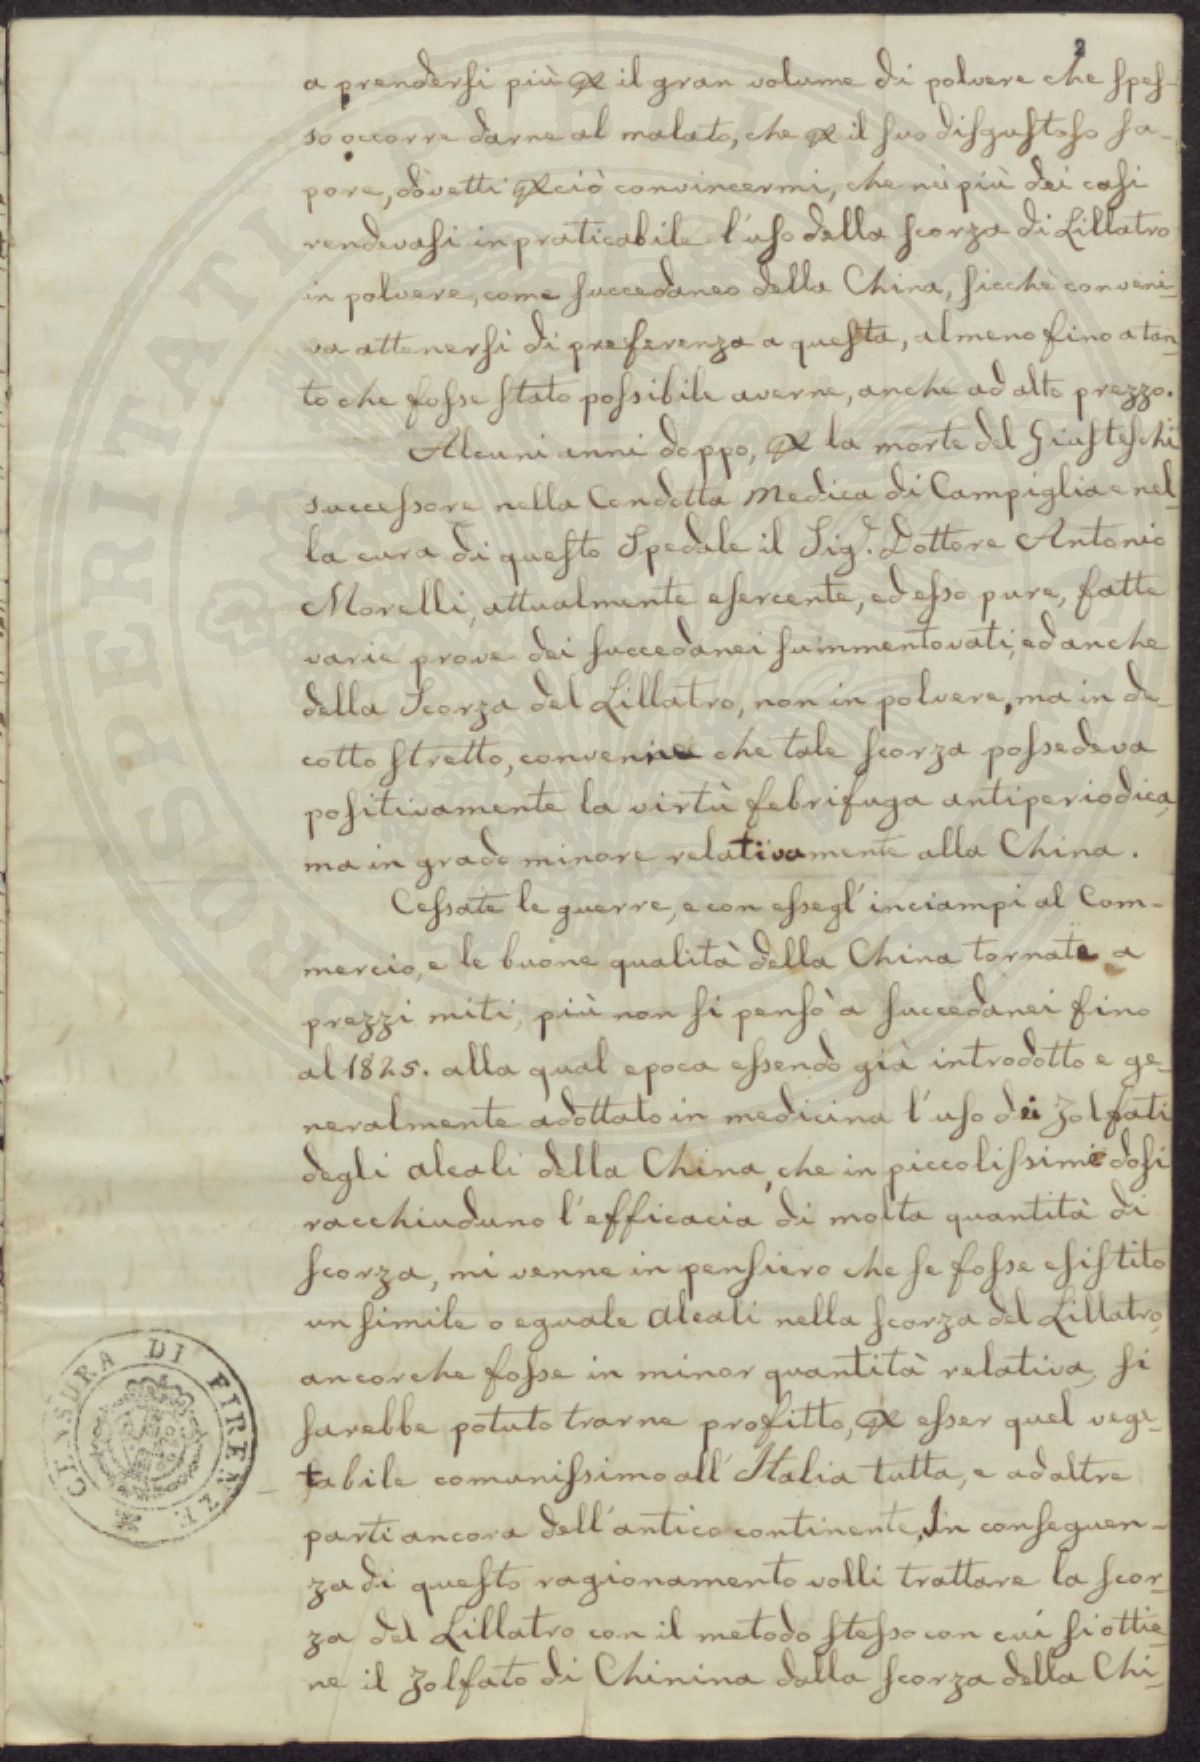 2
a prendersi più p il gran volume di polvere che spes-
so occorre darne al malato, che p il suo disgustoso sa-
pore, dovetti pciò convincermi, che nei più dei casi
rendevasi inpraticabile l'uso della scorza di Lillatro
in polvere, come succedaneo della China, sicchè conveni-
va attenersi di preferenza a questa, almeno fino a tan-
to che fosse stato possibile averne, anche ad alto prezzo.
Alcuni anni doppo, p la morte del Giusteschi
successore nella Condotta Medica di Campiglia e nel-
la cura di questo Spedale il Sig.r Dottore Antonio
Morelli, attualmente esercente, ed esso pure, fatte
varie prove dei succedanei summentovati, ed anche
della Scorza del Lillatro, non in polvere, ma in de-
cotto stretto, convenne che tale scorza possedeva
positivamente la virtù febrifuga antiperiodica,
ma in grado minore relativamente alla China.
Cessate le guerre, e con esse gl'inciampi al Com-
mercio, e le buone qualità della China tornate a
prezzi miti, più non si pensò a succedanei fino
al 1825. alla qual epoca essendo già introdotto e ge-
neralmente adottato in medicina l'uso dei Zolfati
degli alcali della China, che in piccolissime dosi
racchiudano l'efficacia di molta quantità di
scorza, mi venne in pensiero che se fosse esistito
un simile o eguale alcali nella scorza del Lillatro,
ancorche fosse in minor quantità relativa, si
sarebbe potuto trarne profitto, p esser quel vege-
tabile comunissimo all'Italia tutta, e ad altre
parti ancora dell'antico continente, In conseguen-
za di questo ragionamento volli trattare la scor-
za del Lillatro con il metodo stesso con cui si ottie-
ne il Zolfato di Chinina dalla scorza della Chi-
CENSURA DI FIRENZE
PROSPERITATI PUBLICAE